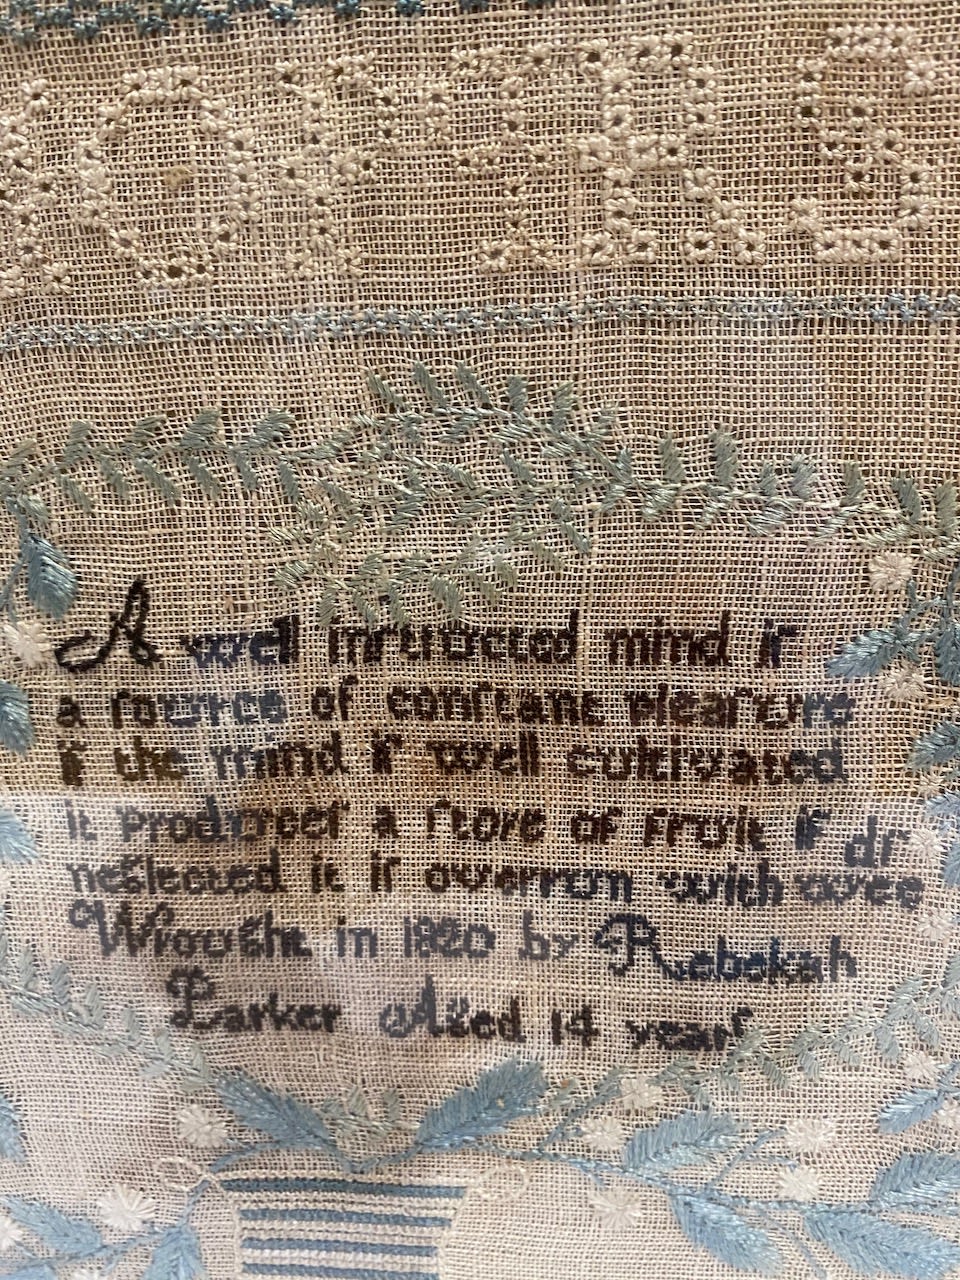 N O P Q R S
A well inſtructed mind iſ
a ſource of conſtant pleaſure
if the mind iſ well cultivated
it produceſ a ſtore of fruit if
dſ
neglected it iſ overrun with wee
Wrought in 1820 by Rebekah
Parker Aged 14 yearſ